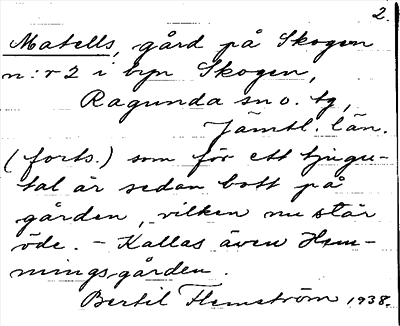 2.
Matells, gård på Skogen
n:r 2 i byn Skogen,
Ragunda sn o. tg,
Jämtl. län.
(forts.) som för ett tjugu-
tal år sedan bott på
gården, vilken nu står
öde. – Kallas även Hem-
mingsgården.
Bertil Flemström 1938.